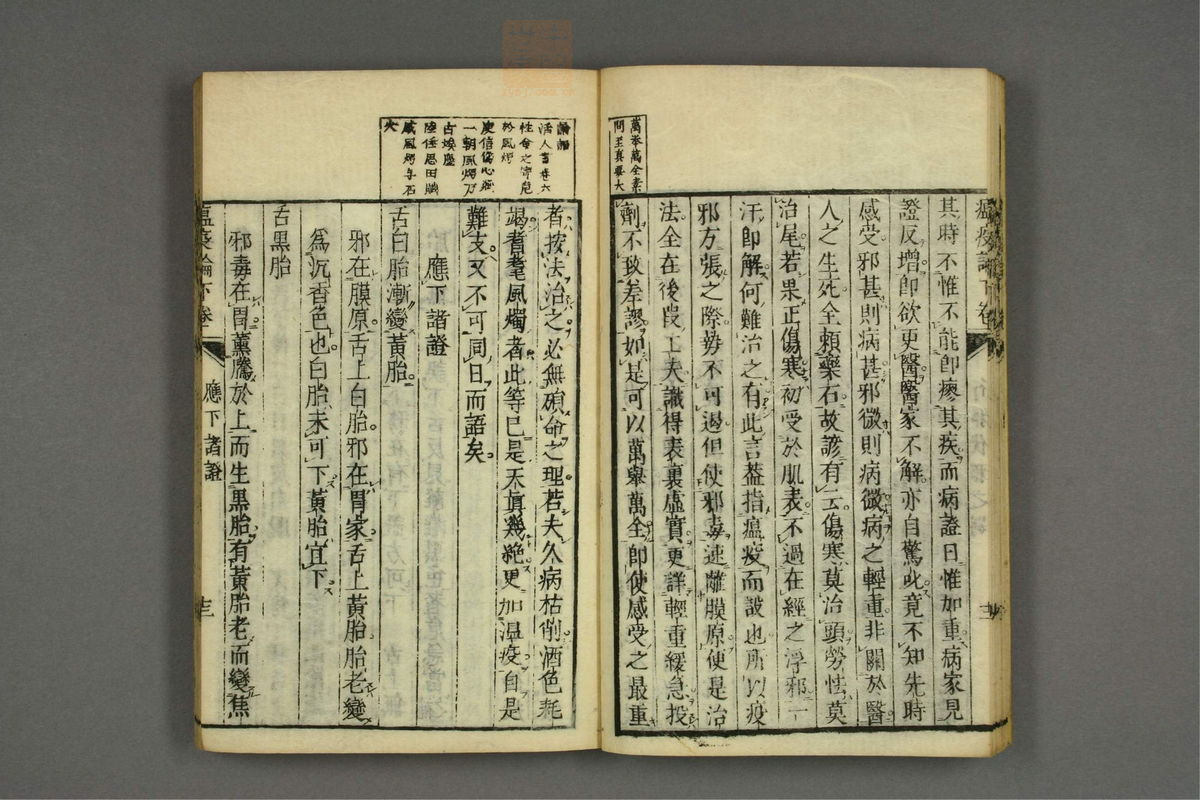 其時不惟不能即瘳其疾而病證日惟加重病家見
證反增即欲更醫醫家不解亦自驚叱竟不知先時
感受邪甚則病甚邪微則病微病之輕重非關於醫
人之生死全賴藥石故諺有云傷寒莫治頭勞怯莫
治尾若果正傷寒初受於肌表不過在經之浮邪一
汗即解何難治之有此言葢指瘟疫而設也所以疫
邪方張之際勢不可遏但使邪毒速離膜原便是治
法全在後段工夫識得表裏虛實更詳輕重緩急投
劑不致差謬如是可以萬舉萬全即使感受之最重
萬挙萬全素
問至真要大
者按法治之必無殞命之理若夫久病枯削酒色耗
竭耆耄風燭者此等已是天真幾絕更加温疫自是
難支又不可同日而語矣
應下諸證
舌白胎漸變黃胎
邪在膜原舌上白胎邪在胃家舌上黃胎胎老變
為沉香色也白胎未可下黃胎宜下
舌黑胎
邪毒在胃薰騰於上而生黑胎有黃胎老而變焦
活人書卷六
性命之危
於風燭
庾信傷心賦
一朝風燭万
古埃塵
陸任思田賦
感風燭与石
火
瘟疫論下卷
應下諸證